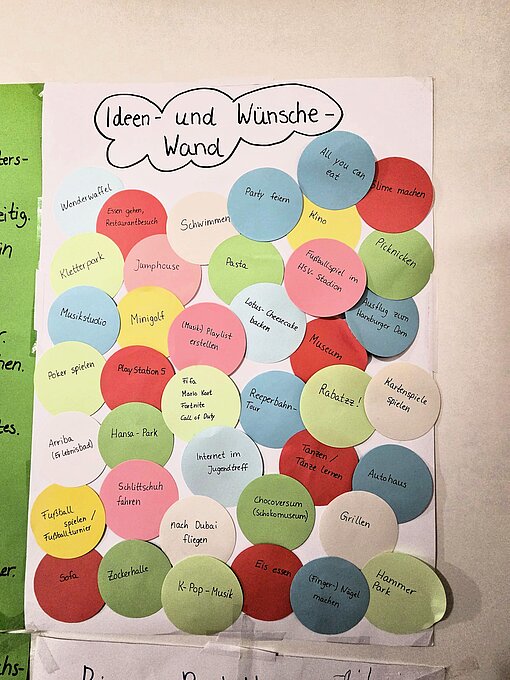 Ideen- und Wünsche-
Wand
ters-
eitig.
in
r.
hen.
tes.
er.
chs-
All you can
eat
Wonderwaffel
Essen gehen,
Restaurantbesuch
Schwimmen
Party feiern
Kino
machen
Kletterpark
Jumphouse
Pasta
Fußballspiel im
HSV-Stadion
Picknicken
Musikstudio
Minigolf
(Musik) Playlist
erstellen
Lotus-Cheesecake
backen
Museum
Ausflug zum
Hamburger Dom
Poker spielen
PlayStation 5
Fifa
Mario Kart
Fortnite
Call of Duty
Reeperbahn-
Tour
Rabatzz!
Kartenspiele
spielen
Arriba
(Erlebnisbad)
Hansa-Park
Internet im
Jugendtreff
Tanzen/
Tänze lernen
Autohaus
Fußball
spielen /
Fußballturnier
Schlittschuh
fahren
nach Dubai
fliegen
Chocoversum
(Schokomuseum)
Grillen
Sofa
Zockerhalle
K-Pop-Musik
Eis essen
(Finger-) Nägel
machen
Hammer
Park